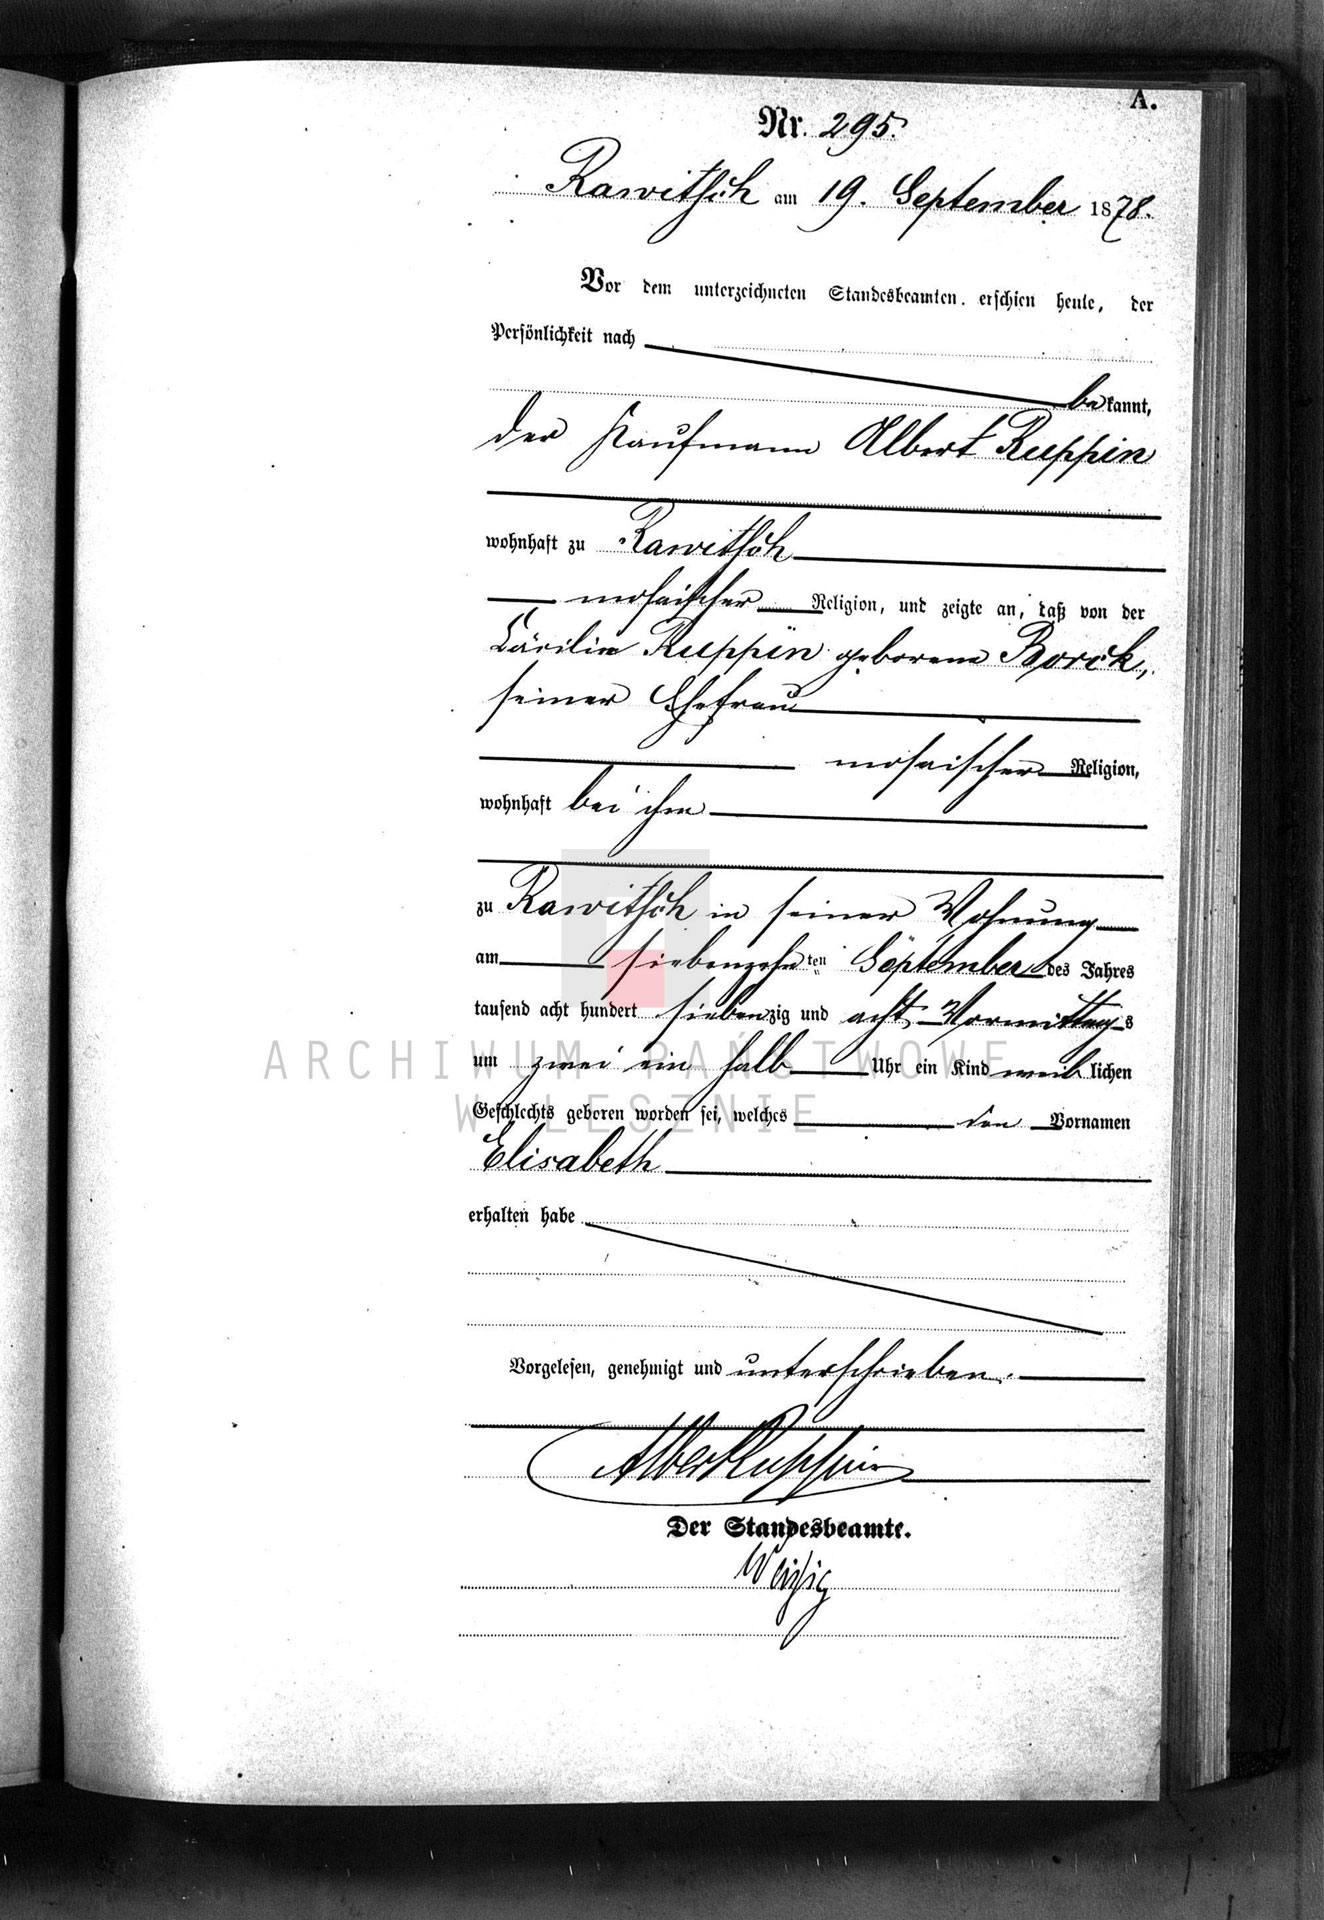 A.
Nr. 295.
Rawitsch am 19. September 1878.
Vor dem unterzeichneten Standesbeamten erschien heute, der
Persönlichkeit nach
bekannt,
der Kaufmann Albert Ruppin
wohnhaft zu Rawitsch
mosaischer Religion, und zeigte an, daß von der
Cäcilie Ruppin geborene Borck,
seiner Ehefrau
mosaischer Religion,
wohnhaft bei ihm
zu Rawitsch in seiner Wohnung
am siebenzehnten September des Jahres
tausend acht hundert siebenzig und acht Vormittags
um zwei ein halb Uhr ein Kind weiblichen
ARCHIWUM PAŃSTWOWE
Geschlechts geboren worden sei, welches den Vornamen
W LESZNIE
Elisabeth
erhalten habe
Vorgelesen, genehmigt und unterschrieben.
Albert Ruppin
Der Standesbeamte.